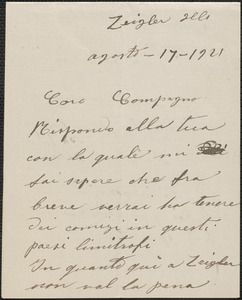 Zeigler Ills
agosto - 17 - 1921
Caro Compagno
Rispondo alla tua
con la quale mi
fai sapere che fra
breve verrai ha tenere
dei comizi in questi
paesi limitrofi
In quanto qui a Zeigler
non val la pena